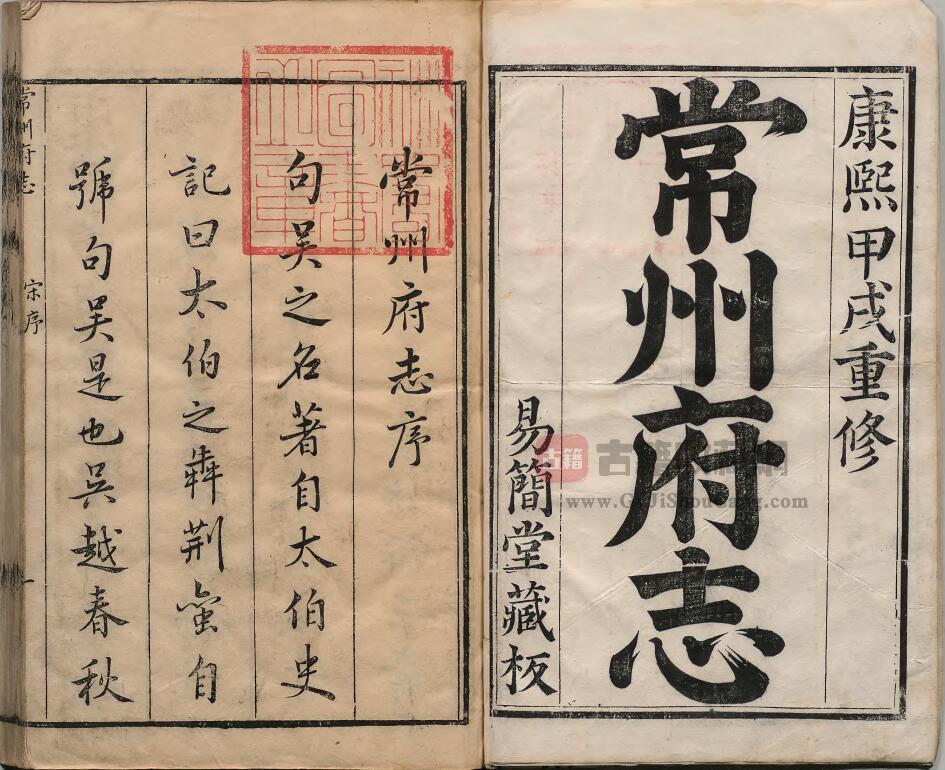 康熙甲戌重修
常州府志
易簡堂藏板
常州府志序
句吴之名著自太伯史
記曰太伯之犇荆蠻自
號句吴是也吴越春秋
常州府志
宋序
一
古籍
www.GuJiShouCang.com